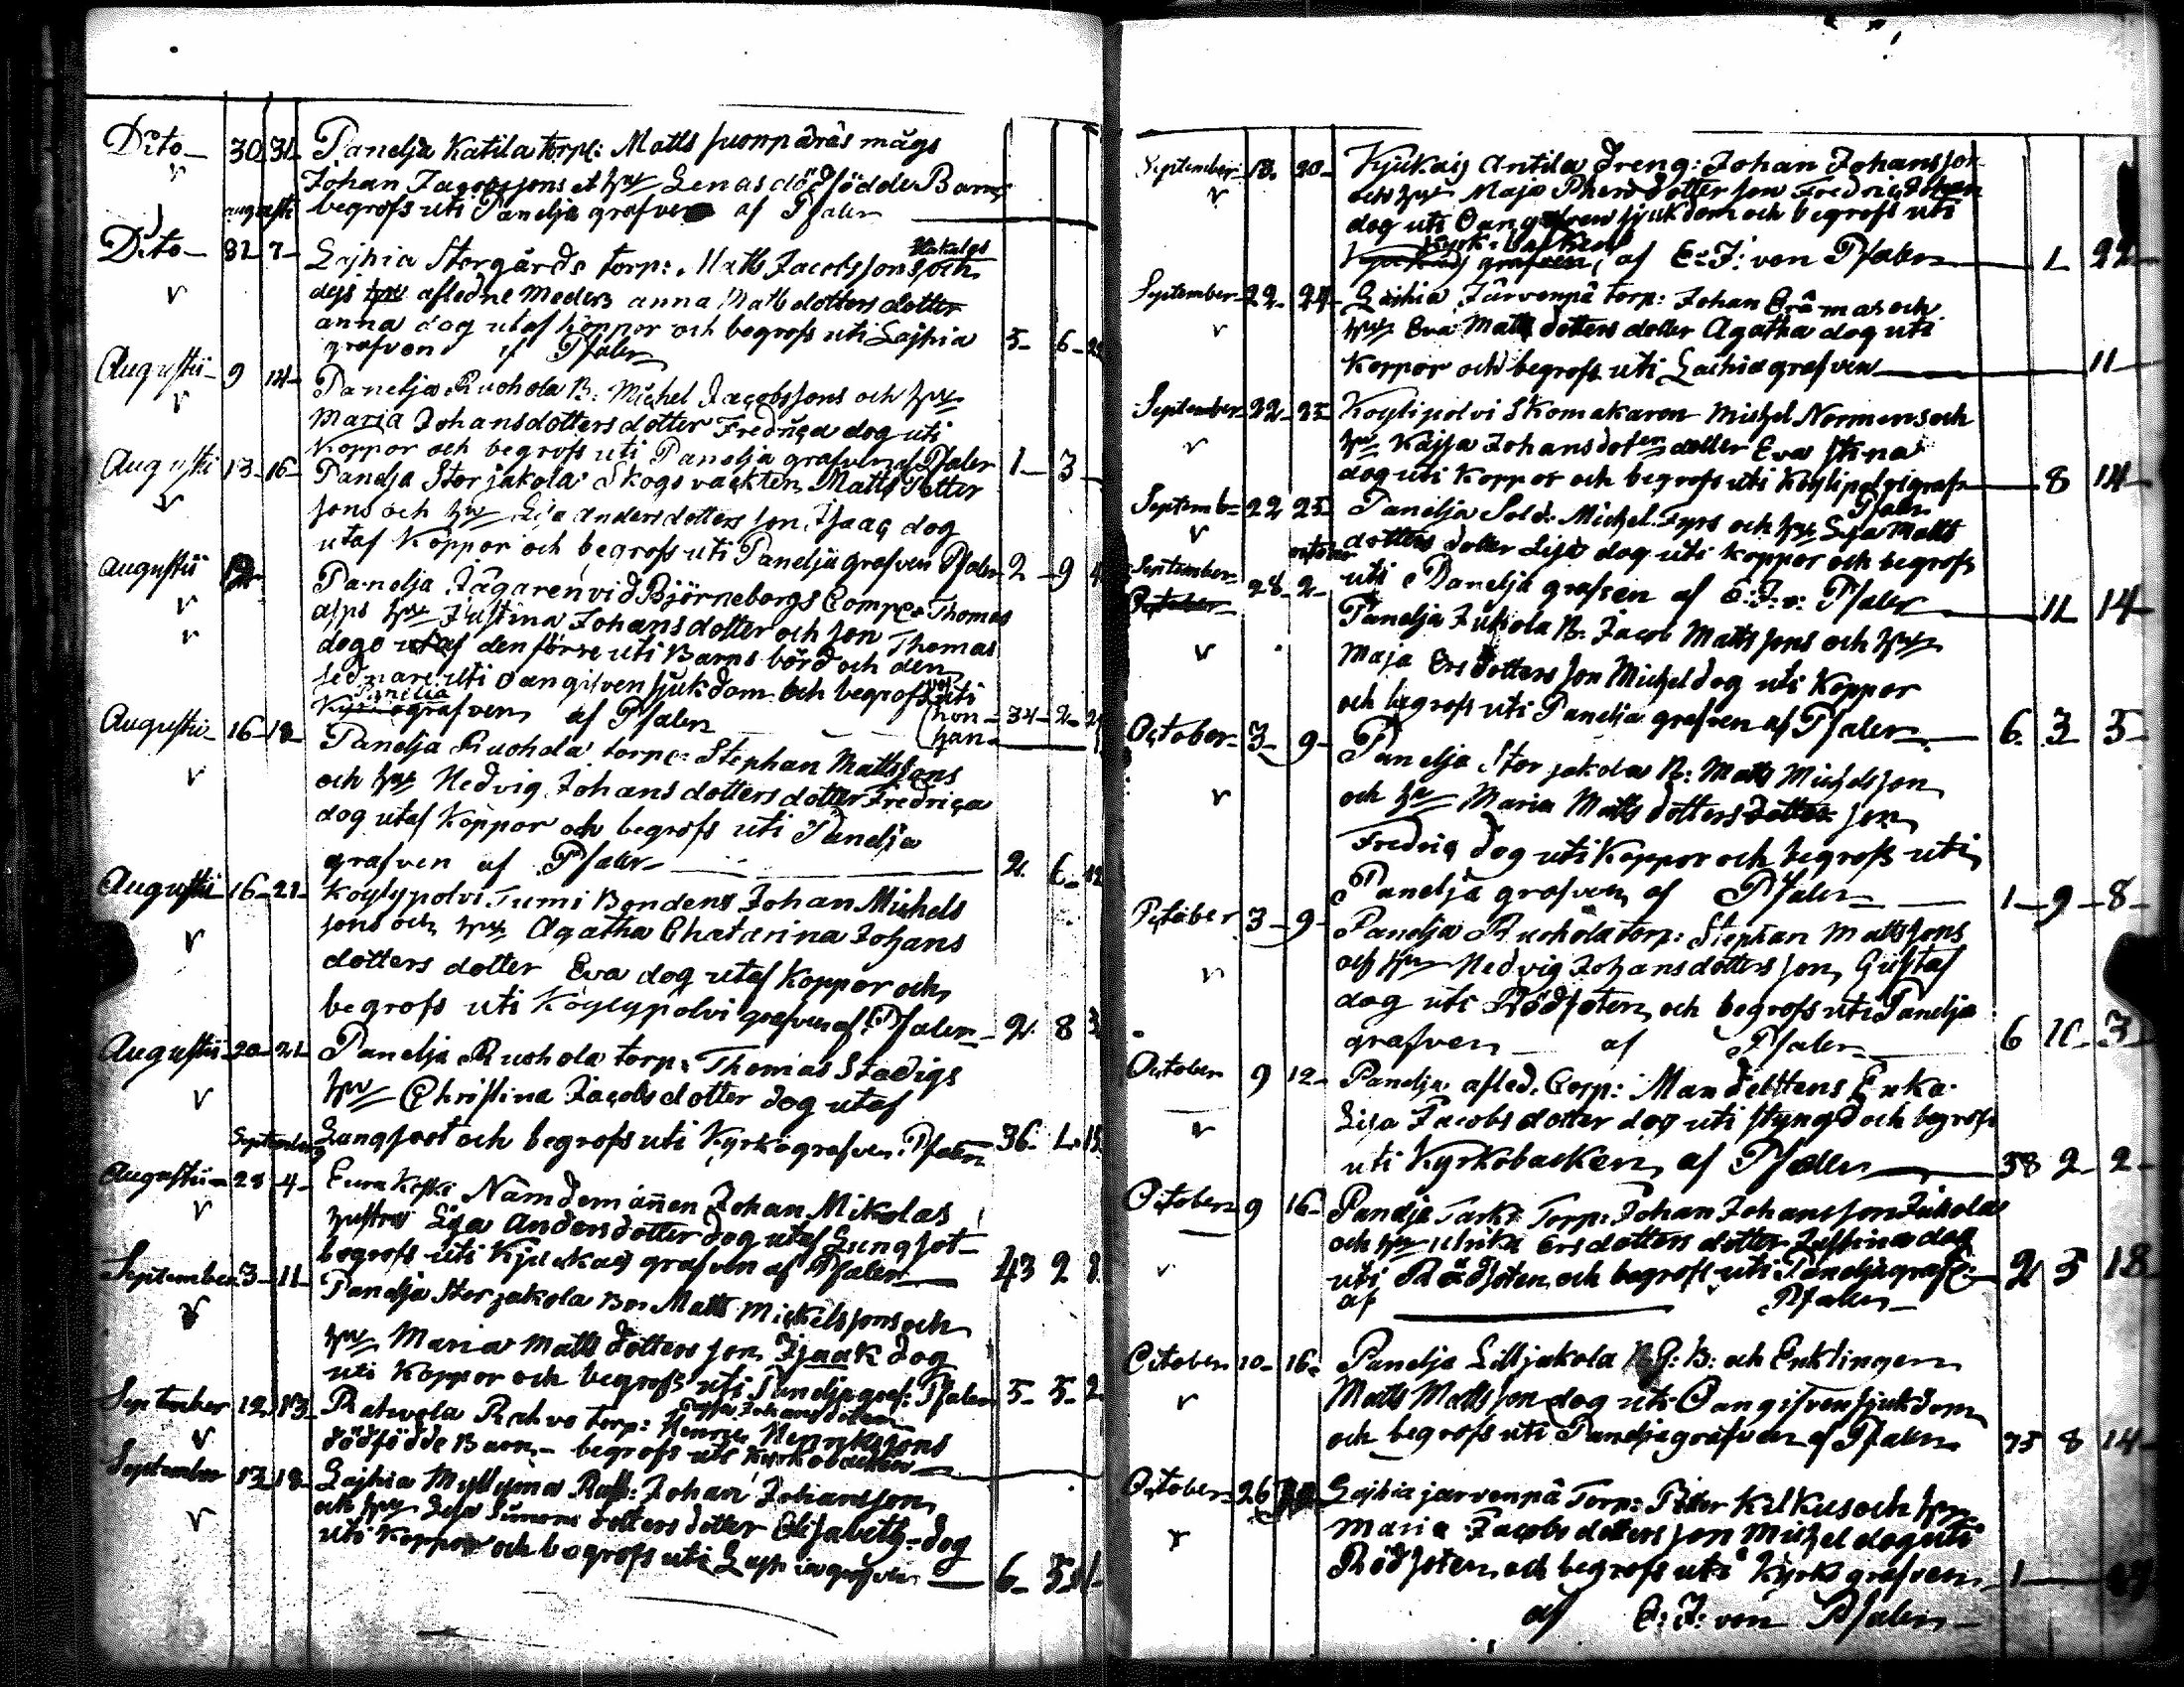 Dito 30 31 Panelja Katila torp: Matts mågs
Johan Jacobssons et hust Lenas dödfödde Barn
augusti begrofs uti Panelja grafven af Pfaler
Dito 31 7 Lajhia Storgårds torp: Matts Jacobssons och
dess afledne Moders anna Matts dotters dotter
anna dog utaf Koppor och begrofs uti Lajhia
grafven af Pfaler 5 6
Augustii 9 14 Panelja Ruohola B: Michel Jacobssons och hust
Maria Johansdotters dotter Fredrica dog uti
Koppor och begrofs uti Panelja grafven af Pfaler 1 3
Augusti 13 16 Panelja Storjakola Skogsvackten Matts Petter
sons och hust Lisa andersdotters son Isaac dog
utaf Koppor och begrofs uti Panelja grafven Pfaler 2 9
augustii Panelja Jagaren vid Björneborgs Comp: Thomas
asps hust Justina Johansdotter och son Thomas
dogo utaf den förre uti Barnsbörd och den
sednare uti Oangifven sjukdom och begrofs uti
Panelia
grafven af Pfaler hon 34 2
han
Augustii 16 18 Panelja Ruohola torp: Stephan Mattssons
och hust Hedvig Johansdotters dotter Fredrica
dog utaf Koppor och begrofs uti Panelja
grafven af Pfaler 2 6
Augustii 16 21 Köylypolvi Tumi Bondens Johan Michels
sons och hust Agatha Chatarina Johans
dotters dotter Eva dog utaf Koppor och
begrofs uti Köylypolvi grafven af Pfaler 2 8
Augustii 20 21 Panelja Ruohola torp: Thomas Stadigs
hust Christina Jacobsdotter dog utaf
September Lungsoot och begrofs uti Kyrkografven Pfaler 36 1
Augustii 28 4 Eura Keski Nämdemannen Johan Mikolas
hustru Lisa Andersdotter dog utaf Lungsot
begrofs uti Kjuckais grafven af Pfaler 43 2 8
September 3 11 Panelja Storjakola Bon Matts Mickelssons och
hust Maria Mattsdotters son Isaak dog
uti Koppor och begrofs uti Panelja graf: Pfaler 5 5 2
September 12 13 Ratvola Rahvo torp: Henric Henrikssons
Johansdotters
dödfödde Barn begrofs uti Kyrkobacken
September 13 18 Lajhia Myllymä Johan Johansson
och hust Lisa Simonsdotters dotter Elisabeth dog
uti Koppor och begrofs uti Lajhia grafven 6 5
September 18 20 Kjukais Antila Dreng: Johan Johansson
och hust Maja dotter son Fredric Johan
dog uti Oangifven sjukdom och begrofs uti
Kyrkobacken
Kjukais grafven, af E: J: von Pfaler 1 22
September 22 24 Lajhia Järvenpä torp: Johan Erämas och
hust Eva Mattsdotters dotter Agatha dog uti
Koppor och begrofs uti Lajhia grafven 11
September 22 25 Köylipolvi Skomakaren Michel Normens och
hust Kajsa Johansdoters dotter Eva Stina
dog uti Koppor och begrofs uti Köylipolvi graf 8 14
Pfaler
Septemb 22 25 Panelja Sold: Michel Fyrs och hust Lisa Matts
dotters dotter Lisa dog uti Koppor och begrofs
uti Panelja grafven af E: J: v: Pfaler 11 14
September october
October 28 2 Panelja Jukola B: Jacob Mattssons och hust
Maja Ersdotters son Michel dog uti Koppor
och begrofs uti Panelja grafven af Pfaler 6 3 5
October 3 9 Panelja Storjakola B: Matts Michelsson
och hust Maria Mattsdotters dotter son
Fredric dog uti Koppor och begrofs uti
Panelja grafven af Pfaler 1 9 8
October 3 9 Panelja Ruohola torp: Stephan Mattssons
och hust Hedvig Johansdotters son Gustaf
dog uti Rödsoten och begrofs uti Panelja
grafven af Pfaler 6 11 3
October 9 12 Panelja afled. Corp: Mandelstens Enka
Lisa Jacobsdotter dog uti styngd och begrofs
uti Kyrkobacken af Pfaler 38 2 2
October 9 16 Panelja Tarki Torp: Johan Johansson Jukolas
och hust Ulrika Ersdotters dotter Justina dog
uti Rödsoten och begrofs uti Panelja graf: 2 5 18
af Pfaler
October 10 16 Panelja Lilljakola B: och Enklingen
Matts Mattsson dog uti Oangifven sjukdom
och begrofs uti Panelja grafven af Pfaler 75 8 14
October 26 Lajhia jarvenpä Torp: Petter Kilkus och hust
Maria Jacobsdotters son Michel dog uti
Rödsoten och begrofs uti Kyrko grafven 1
af E: J: von Pfaler